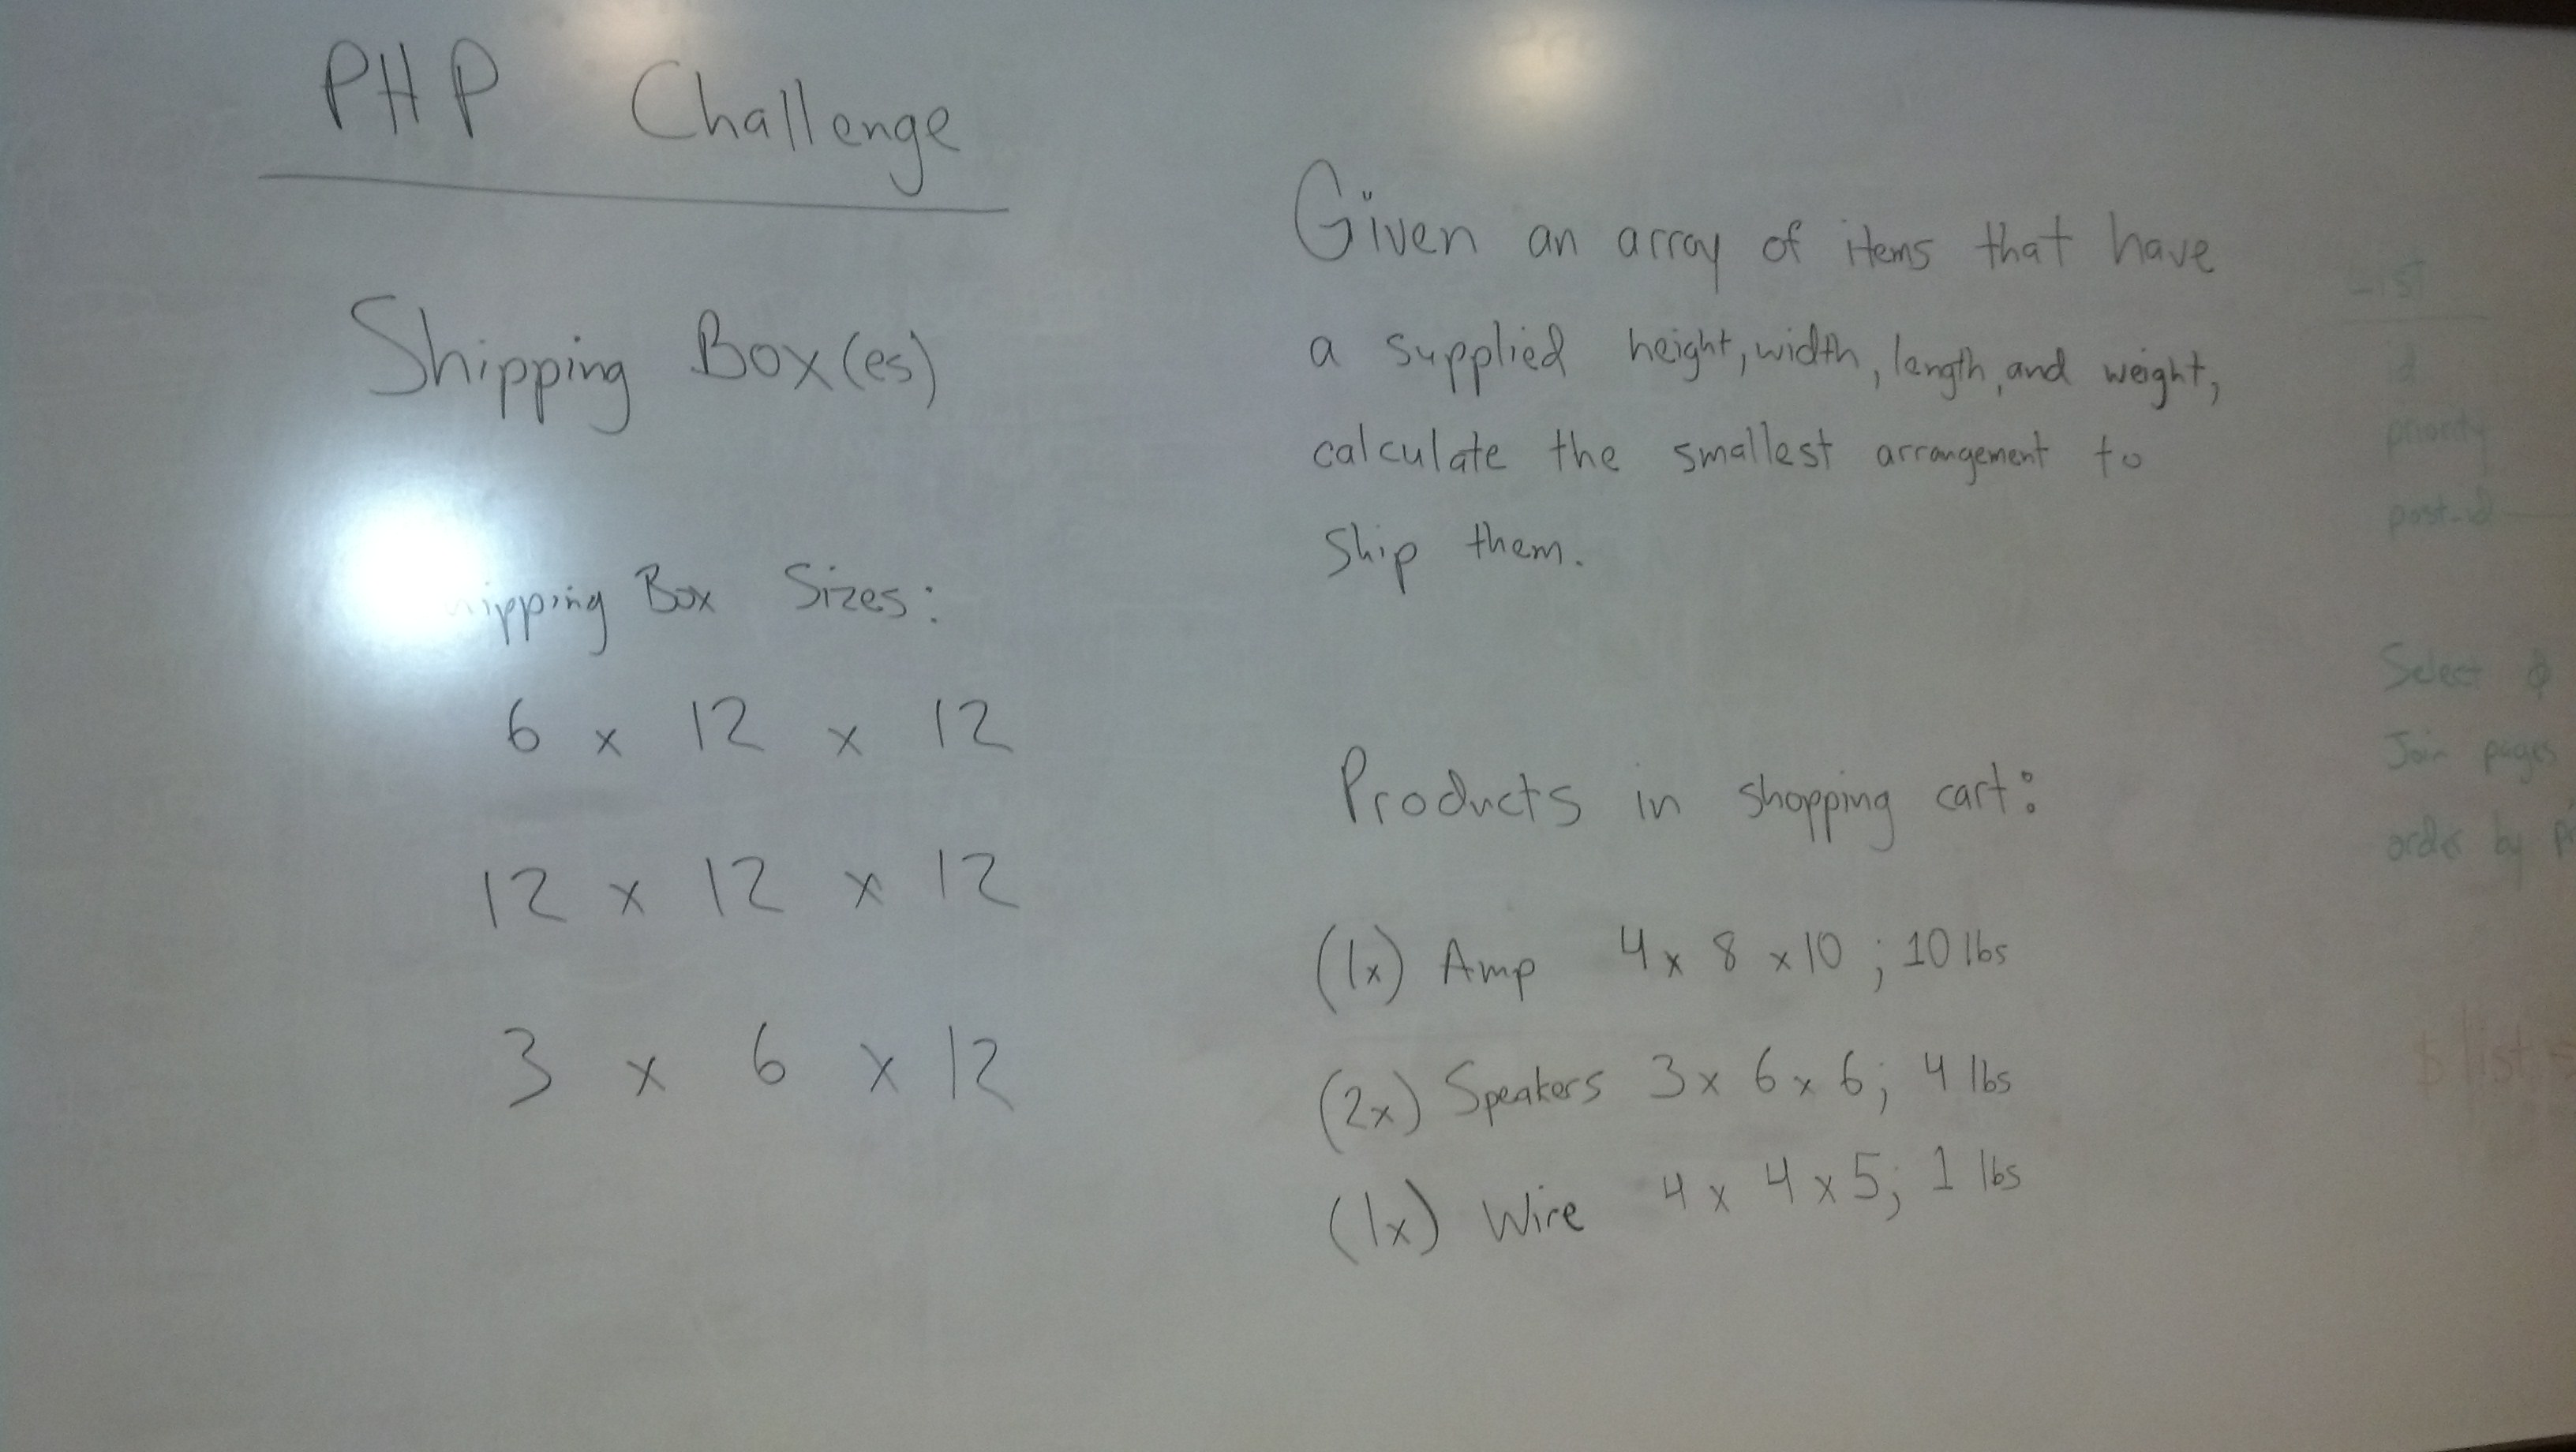 PHP Challenge
Shipping Box(es)
Box Sizes:
6 x 12 x 12
12 x 12 x 12
3 x 6 x 12
Given an array of items that have
a supplied height, width, length, and weight,
calculate the smallest arrangement to
ship them.
Products in shopping cart:
(1x) Amp 4 x 8 x 10 ; 10 lbs
(2x) Speakers 3 x 6 x 6; 4 lbs
(1x) Wire 4 x 4 x 5; 1 lbs
id
priority
post_id
Select
Join pages
order by
$list =